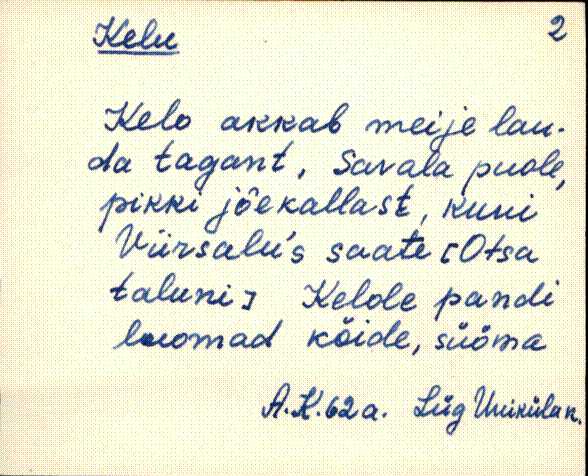 2
Kelu
Kelo akkab meije lau-
da tagant, Savala puole,
pikki jõekallast, kuni
Viirsalu's saate [Otsa
taluni] Kelole pandi
luomad kõide, süöma
A.K. 62a. Lüg Uniküla k.